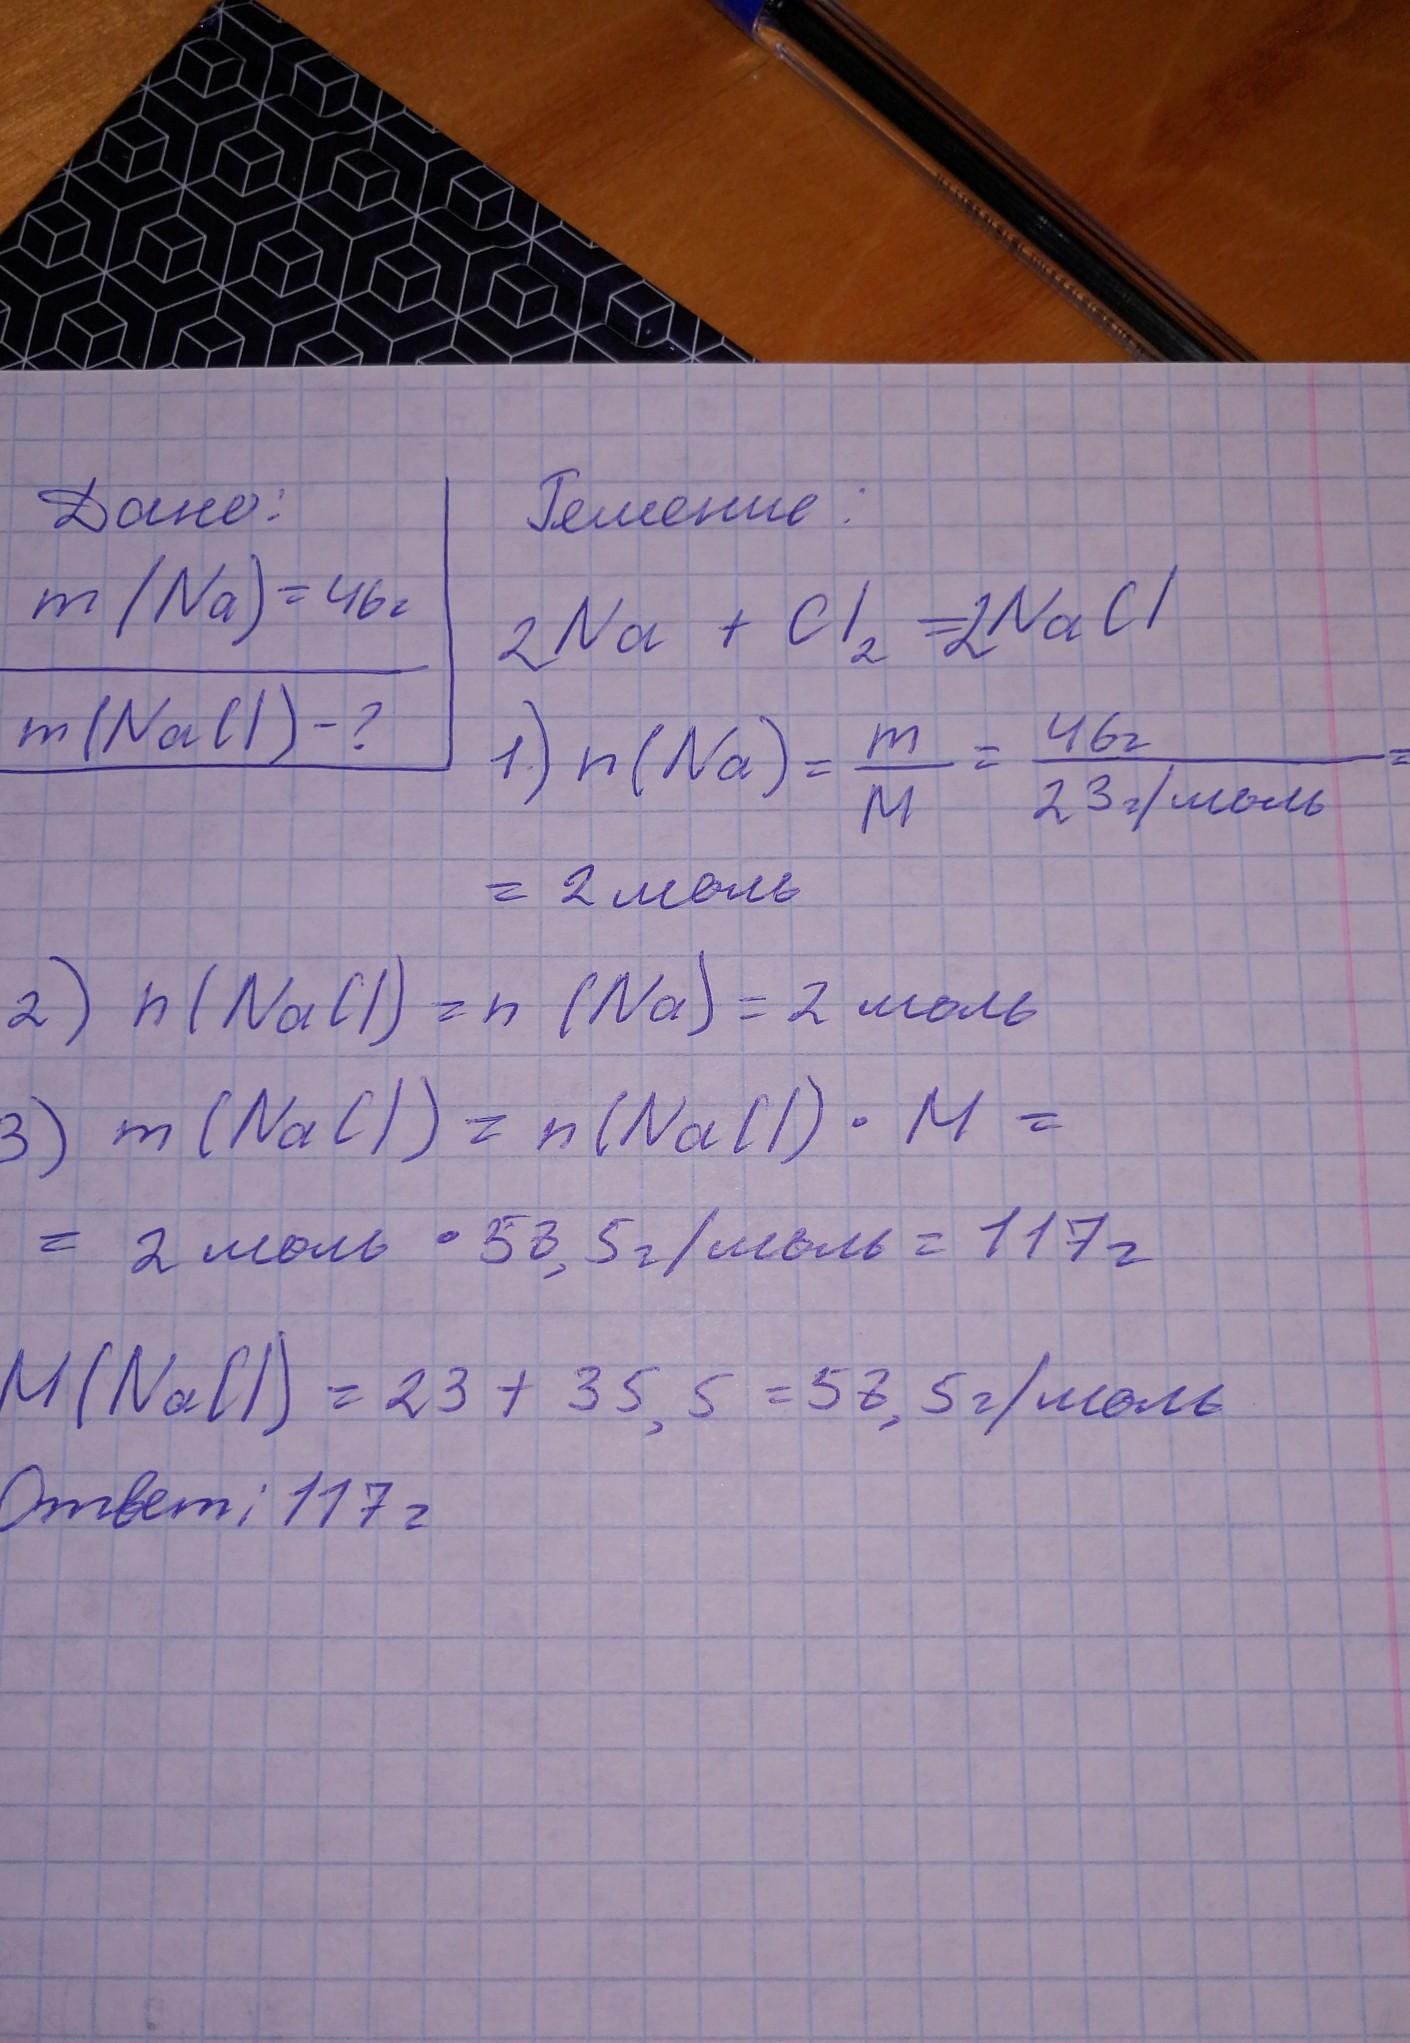 Дано:
m(Na)=46г
m(NaCl)-?
Решение:
2Na + Cl₂ =2NaCl
1) n(Na) = m/M = 46г/23г/моль =
= 2 моль
2) n(NaCl) = n(Na) = 2 моль
3) m(NaCl) = n(NaCl) · M =
= 2 моль · 58,5г/моль = 117г
M(NaCl) = 23 + 35,5 = 58,5г/моль
Ответ: 117г